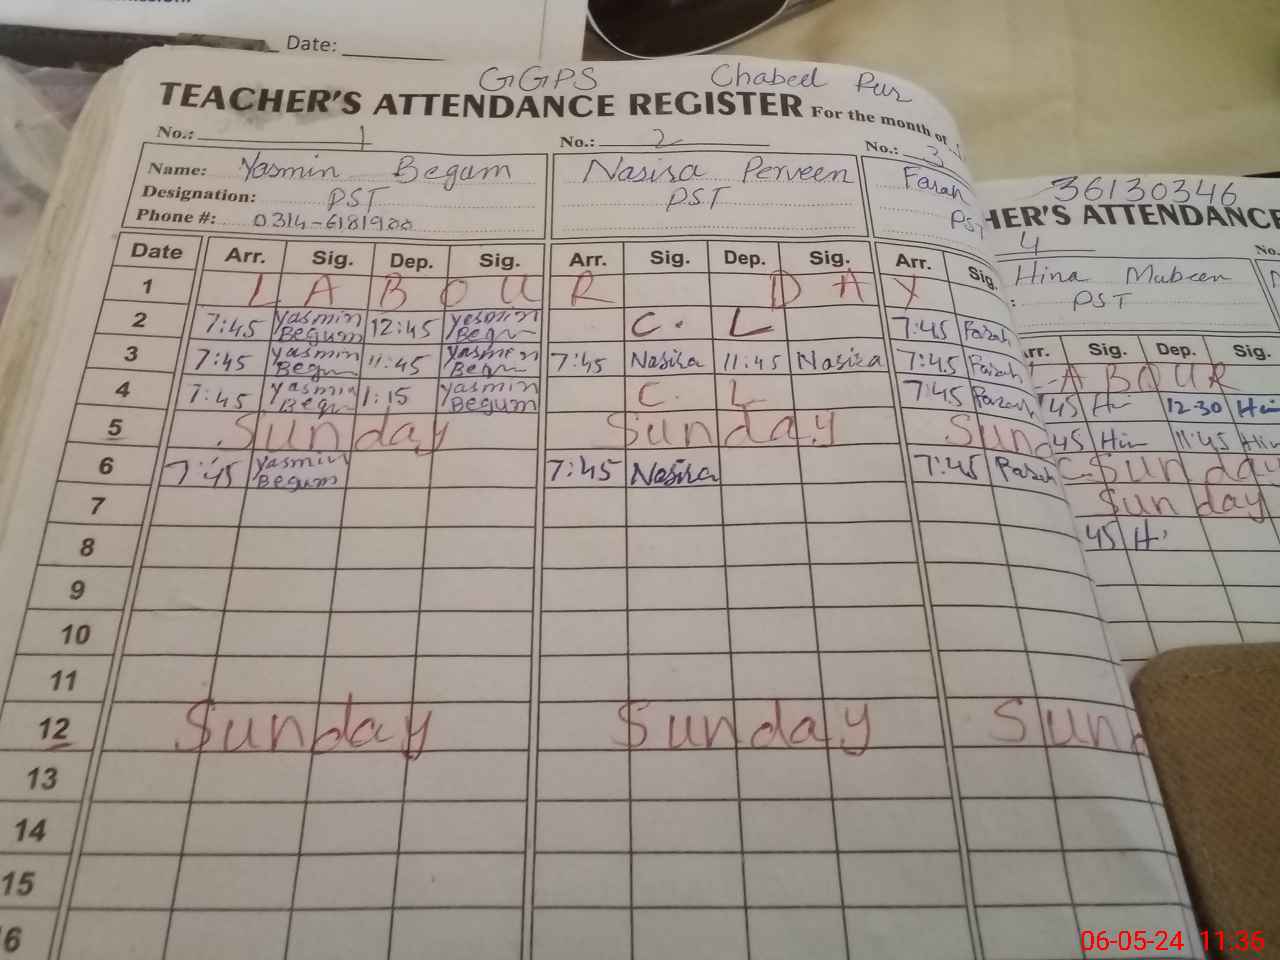 Date:
GGPS Chabeel Pur
TEACHER'S ATTENDANCE REGISTER For the month of
No.: 1 No.: 2 No.: 3
Name: Yasmin Begum Nasira Perveen Farah
Designation: PST PST PST
Phone #: 0314-6181900
Date Arr. Sig. Dep. Sig. Arr. Sig. Dep. Sig. Arr. Sig.
1 LABOUR DAY
2 7:45 Yasmin Begum 12:45 Yasmin Begum C. L 7:45 Farah
3 7:45 Yasmin Begum 11:45 Yasmin Begum 7:45 Nasira 11:45 Nasira 7:45 Farah
4 7:45 Yasmin Begum 1:15 Yasmin Begum C. L 7:45 Farah
5 Sunday Sunday Sun
6 7:45 Yasmin Begum 7:45 Nasira 7:45 Farah
7
8
9
10
11
12 Sunday Sunday Sun
13
14
15
6
36130346
HER'S ATTENDANCE
4 No.
Hina Mubeen
PST
rr. Sig. Dep. Sig.
LABOUR
45 Hi 12-30 Hi
45 Hi 11:45 Hi
Sunday
Sunday
45 Hi
06-05-24 11:36